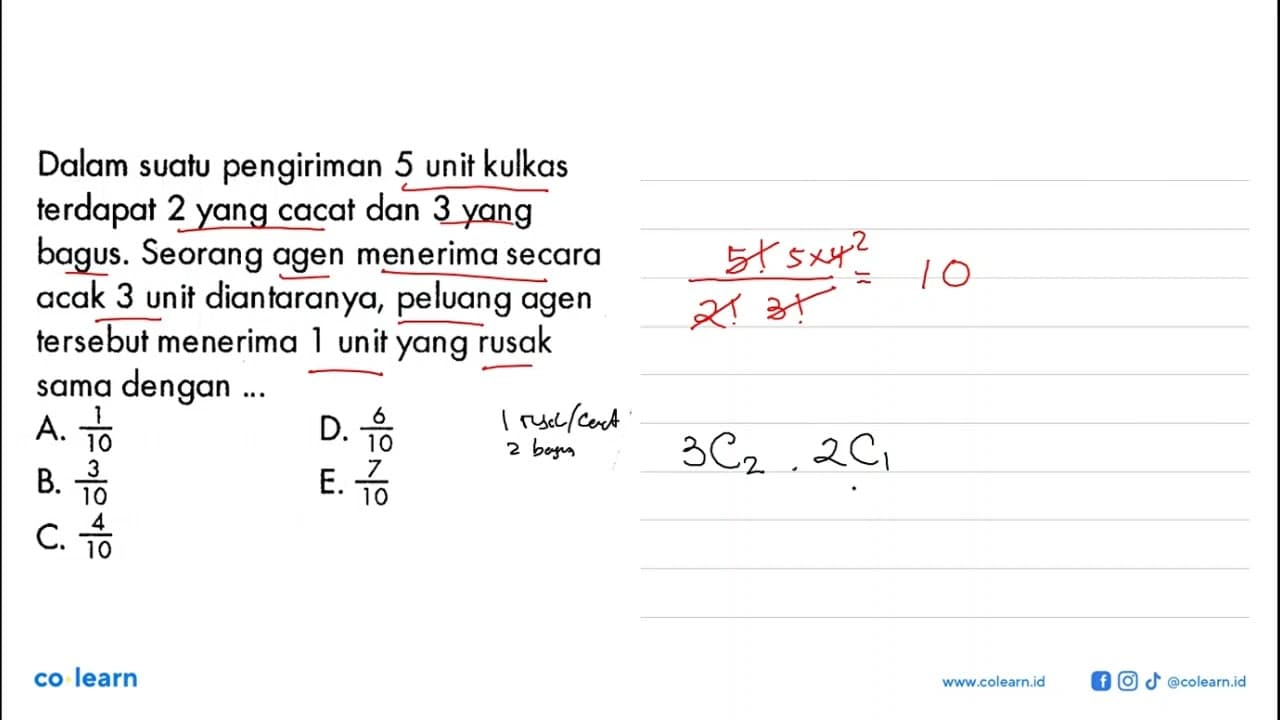 Dalam suatu pengiriman 5 unit kulkas
terdapat 2 yang cacat dan 3 yang
bagus. Seorang agen menerima secara
acak 3 unit diantaranya, peluang agen
tersebut menerima 1 unit yang rusak
sama dengan ...
A. 1/10
B. 3/10
C. 4/10
D. 6/10
E. 7/10
1 rusak/cacat
2 bagus
5! 5×4 2
2! 3!
= 10
3C2 . 2C1
co learn
www.colearn.id
@colearn.id